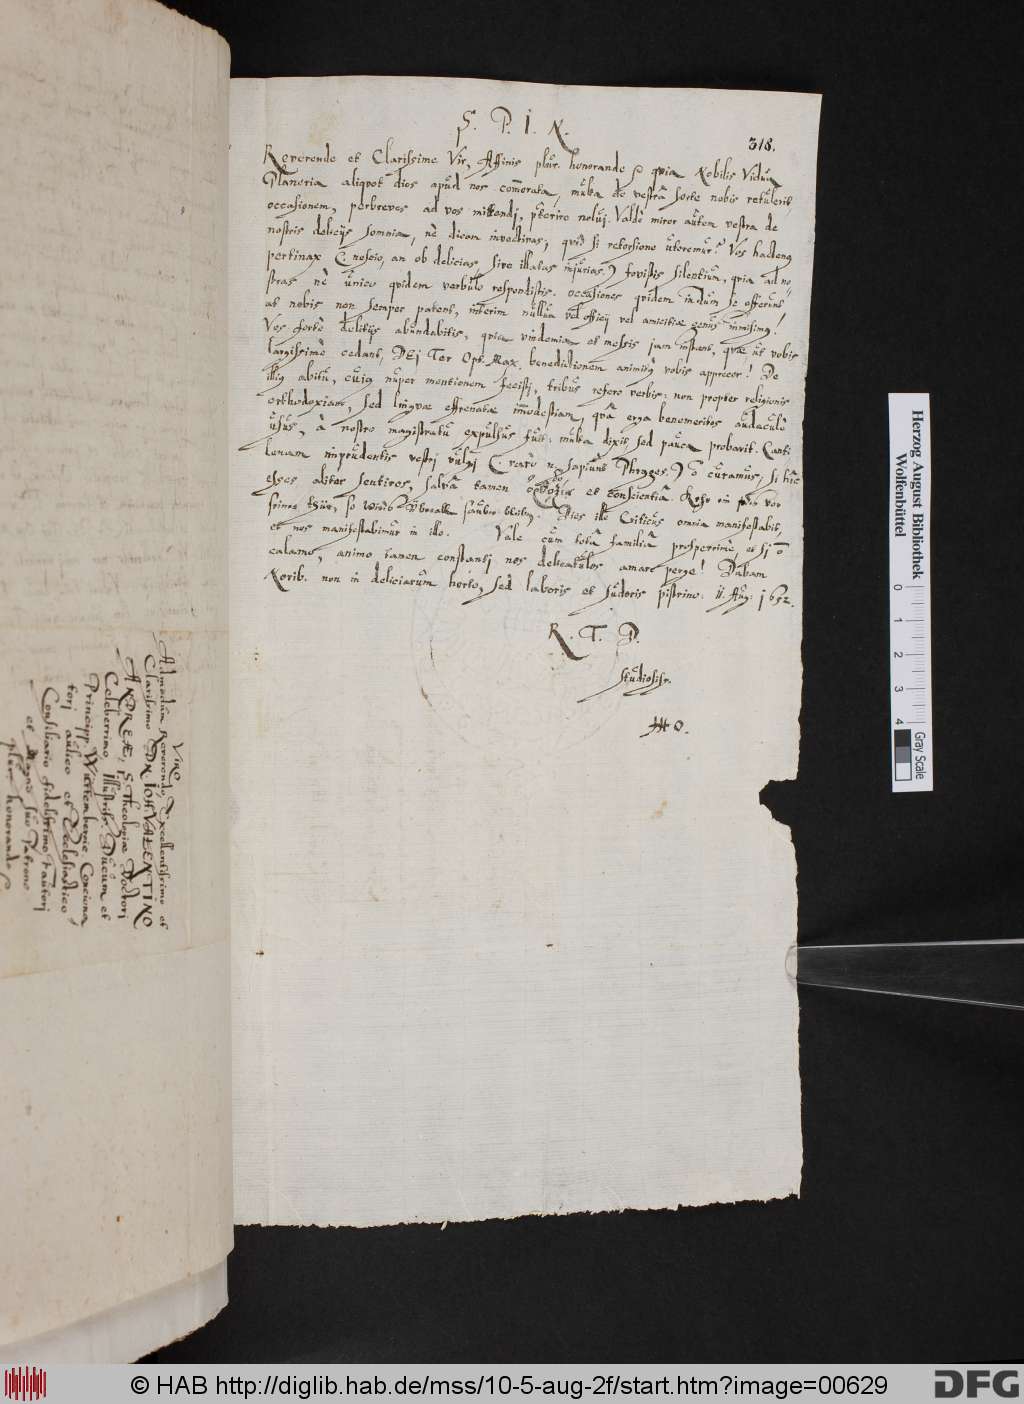 S. P. I. N.
318.
Reverende et Clarissime Vir, Affinis plur. honorande quia Nobilis Vidua
Planeria aliquot dies apud nos com̄orata, multa de vestra sorte nobis retulerit,
occasionem, perbreves ad vos mittendi, p̄terire nolui. Valde miror autem vestra de
nostris delicijs somnia, nè dicam invectivas, quid si retorsione uteremur? Vos hactenq
pertinax (nescio, an ob delicias, sive illatas injurias) fovistis silentium, quia ad no-
stras nè unico quidem verbulo respondistis. occasiones quidem indum se offerunt
at nobis non semper patent, interim nullum vel officij vel amicitiae genus
Vos fortè delitijs abundabitis, quia vindemia et messis jam instant, quae ut vobis
largissimè cedant, DEj Ter Opt. Max. benedictionem animitq vobis apprecor! De
illiq abitu, cujq nuper mentionem fecistj, tribus refero verbis: non propter religionis
orthodoxiam, sed linguae effrenatae im̄odestiam, quâ erga benemeritos audaculè
usus, à nostro magistratu expulsus fuit: multa dixit, sed pauca probavit. Canti
lenam impudentis vestrj vulgj (rarò n. sapiunt Phryges.) curamus, si hic
esses aliter sentires, salvâ tamen et conscientiâ.
serner thür, so wirds überall sauber bleibē. Dies ille Criticus omnia manifestabit,
et nos manifestabimur in illo. Vale cum tota familia prosperrimè, et si
calamo, animo tamen constantj nos delicatulos amare perge! Dabam
Norib. non in deliciarum horto, sed laboris et sudoris pistrino: 11. Aug: 1652.
R. T. D.
studiosiss.
Viro
Admodùm Reverendo, Excellentissimo et
Clarissimo DN. IOH. VALENTINO
ANDREÆ, S. Theologiae Doctori
Celeberrimo, Illustriss. Ducum et
Principp. Würtembergiae Conciona
torj aulico et Ecclesiastico
Consiliario fidelissimo Fautorj
et Magno suo Patrono
plur. honorando
Herzog August Bibliothek
Wolfenbüttel
0 1 2 3 4
Gray Scale
© HAB http://diglib.hab.de/mss/10-5-aug-2f/start.htm?image=00629
DFG